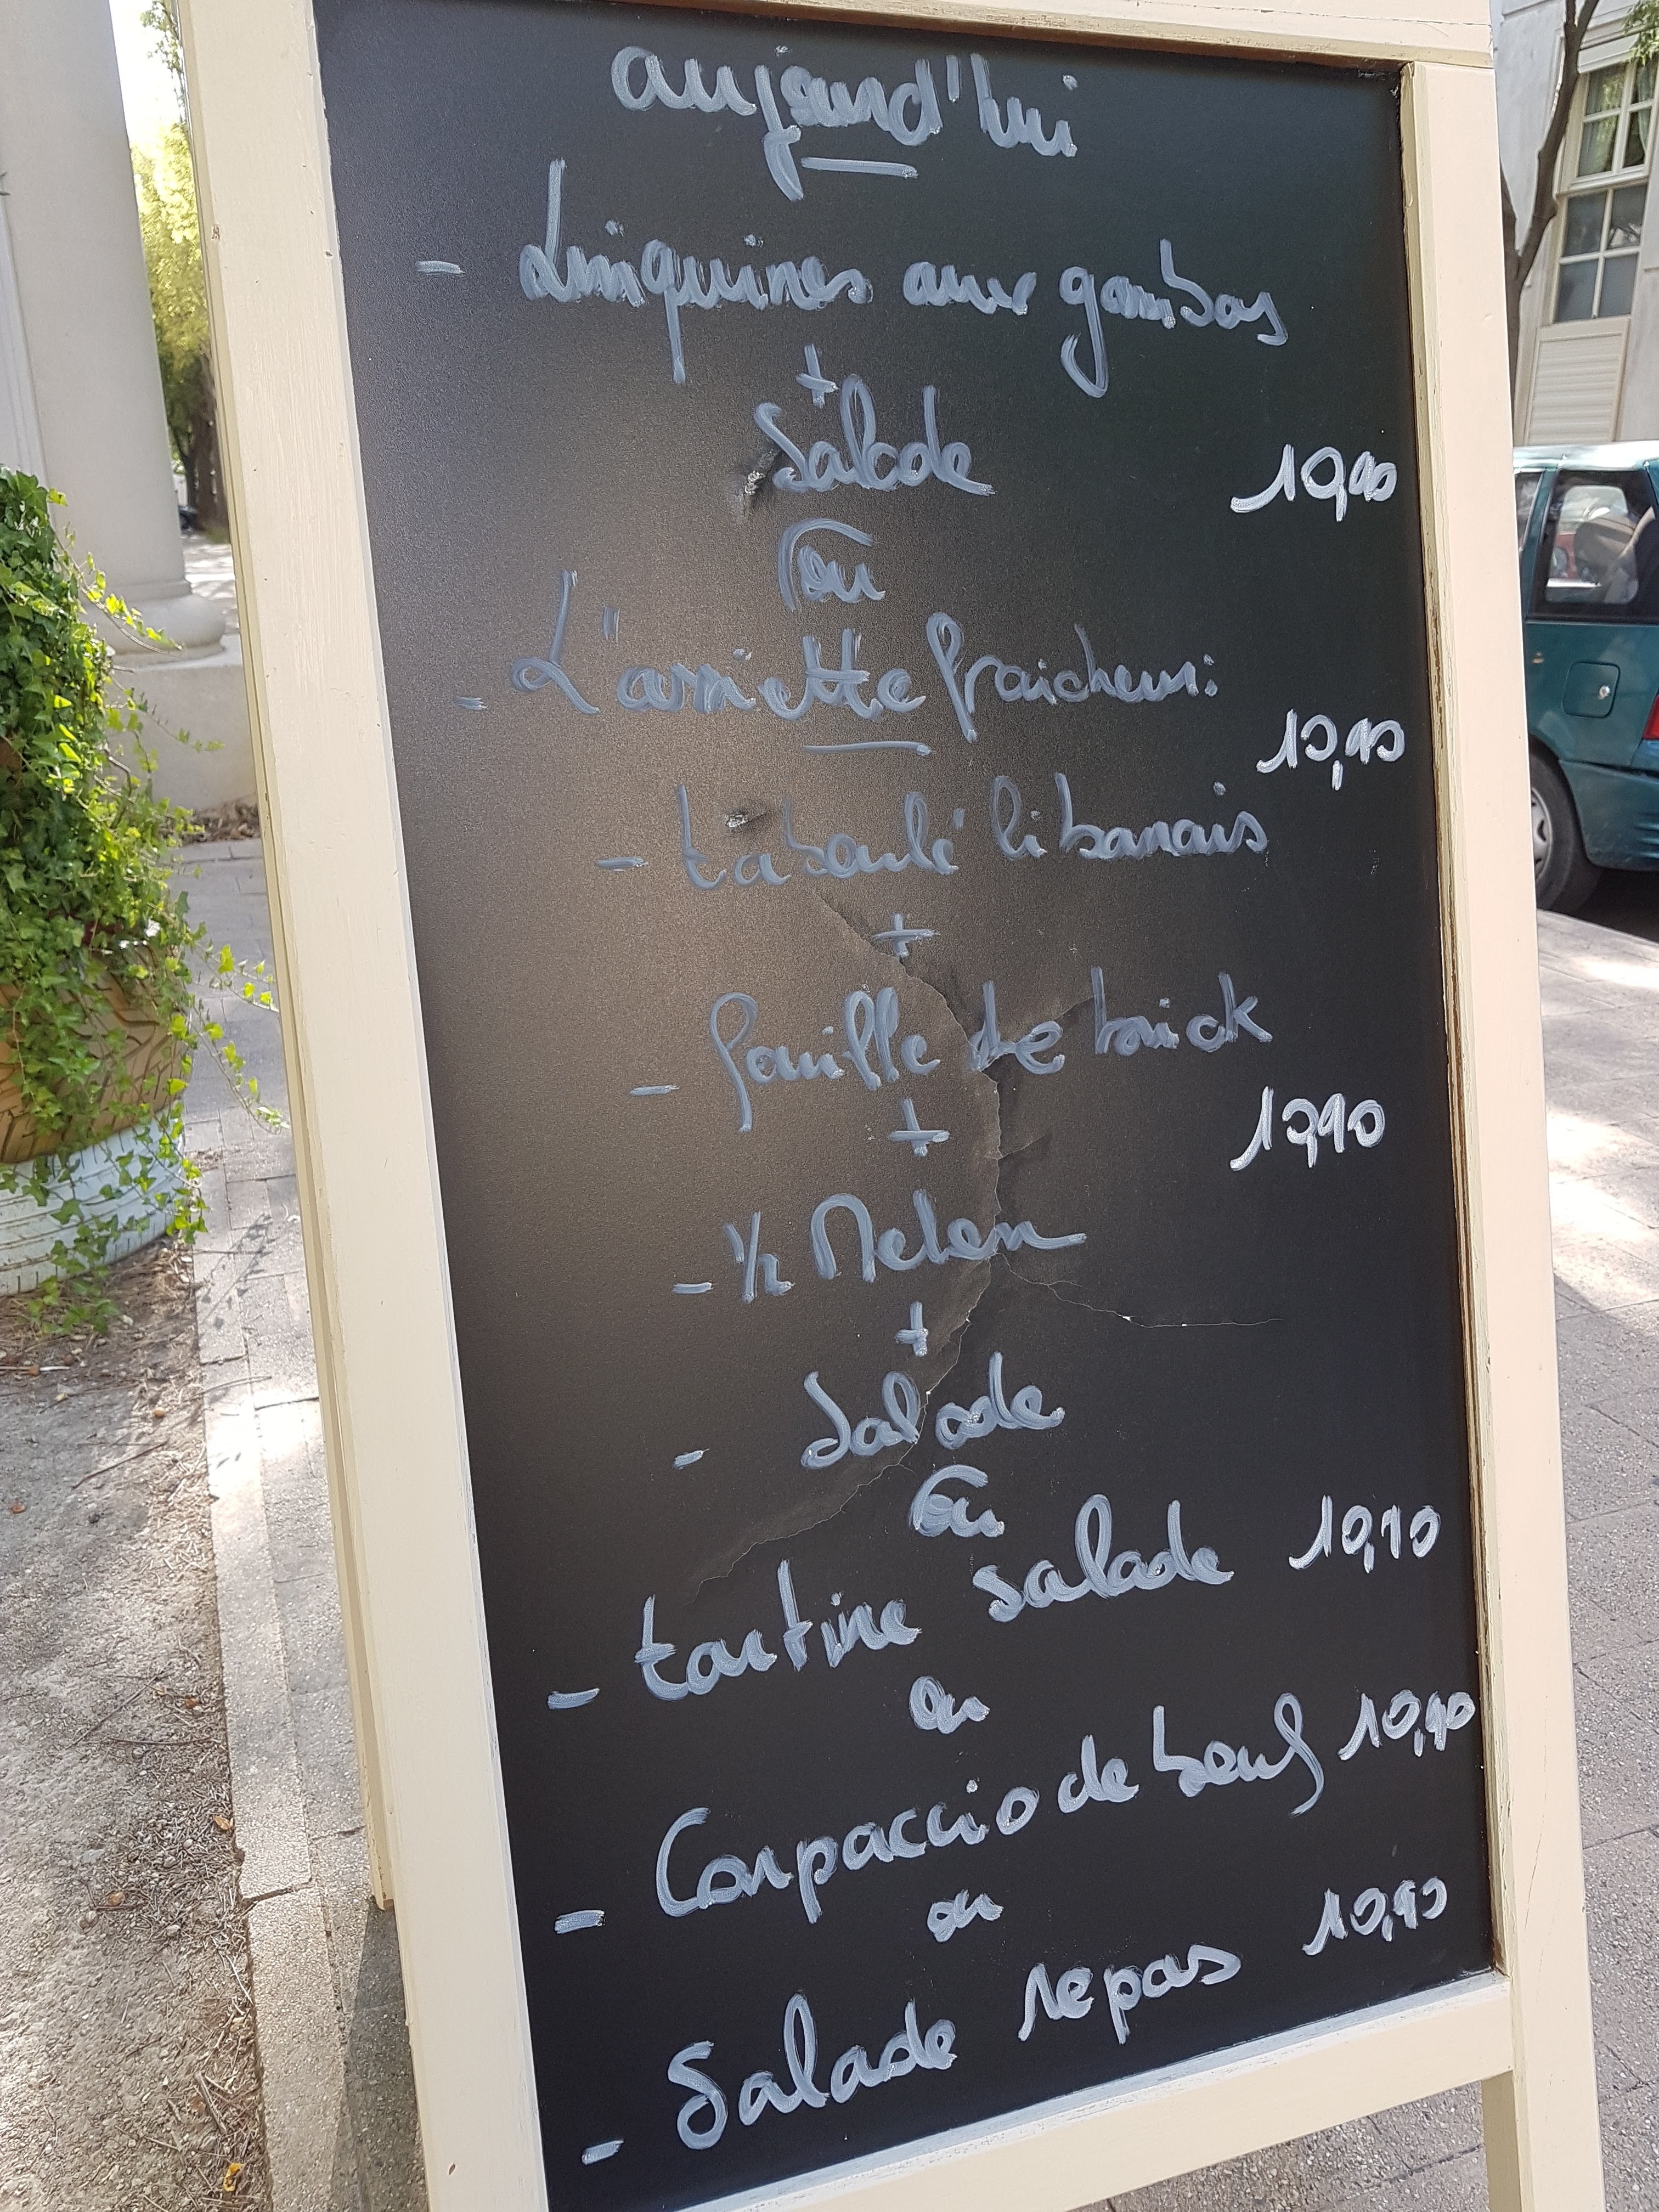 aujourd'hui
- Linguines aux gambas
+
Salade
10,90
ou
- L'assiette fraicheur:
10,90
- taboulé libanais
+
- feuille de brick
+
10,90
- 1/2 Melon
+
- Salade
ou
- tartine salade 10,90
ou
- Carpaccio de boeuf 10,90
ou
- Salade repas 10,90